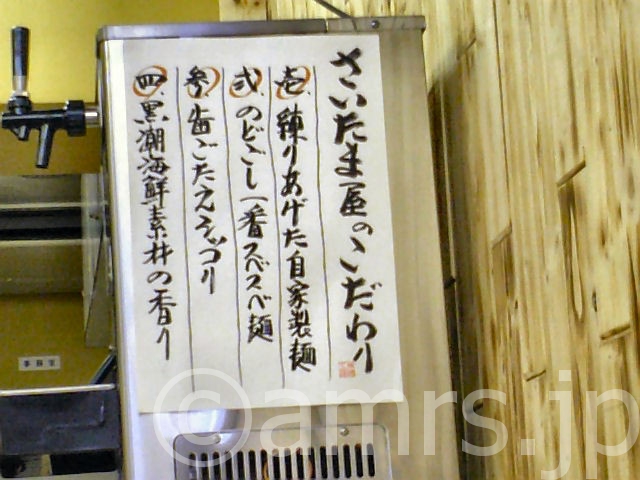 さいたま屋のこだわり
壱、練りあげた自家製麺
弐、のどごし一番スベスベ麺
参、歯ごたえシッコリ
四、黒潮海鮮素材の香り
©amrs.jp